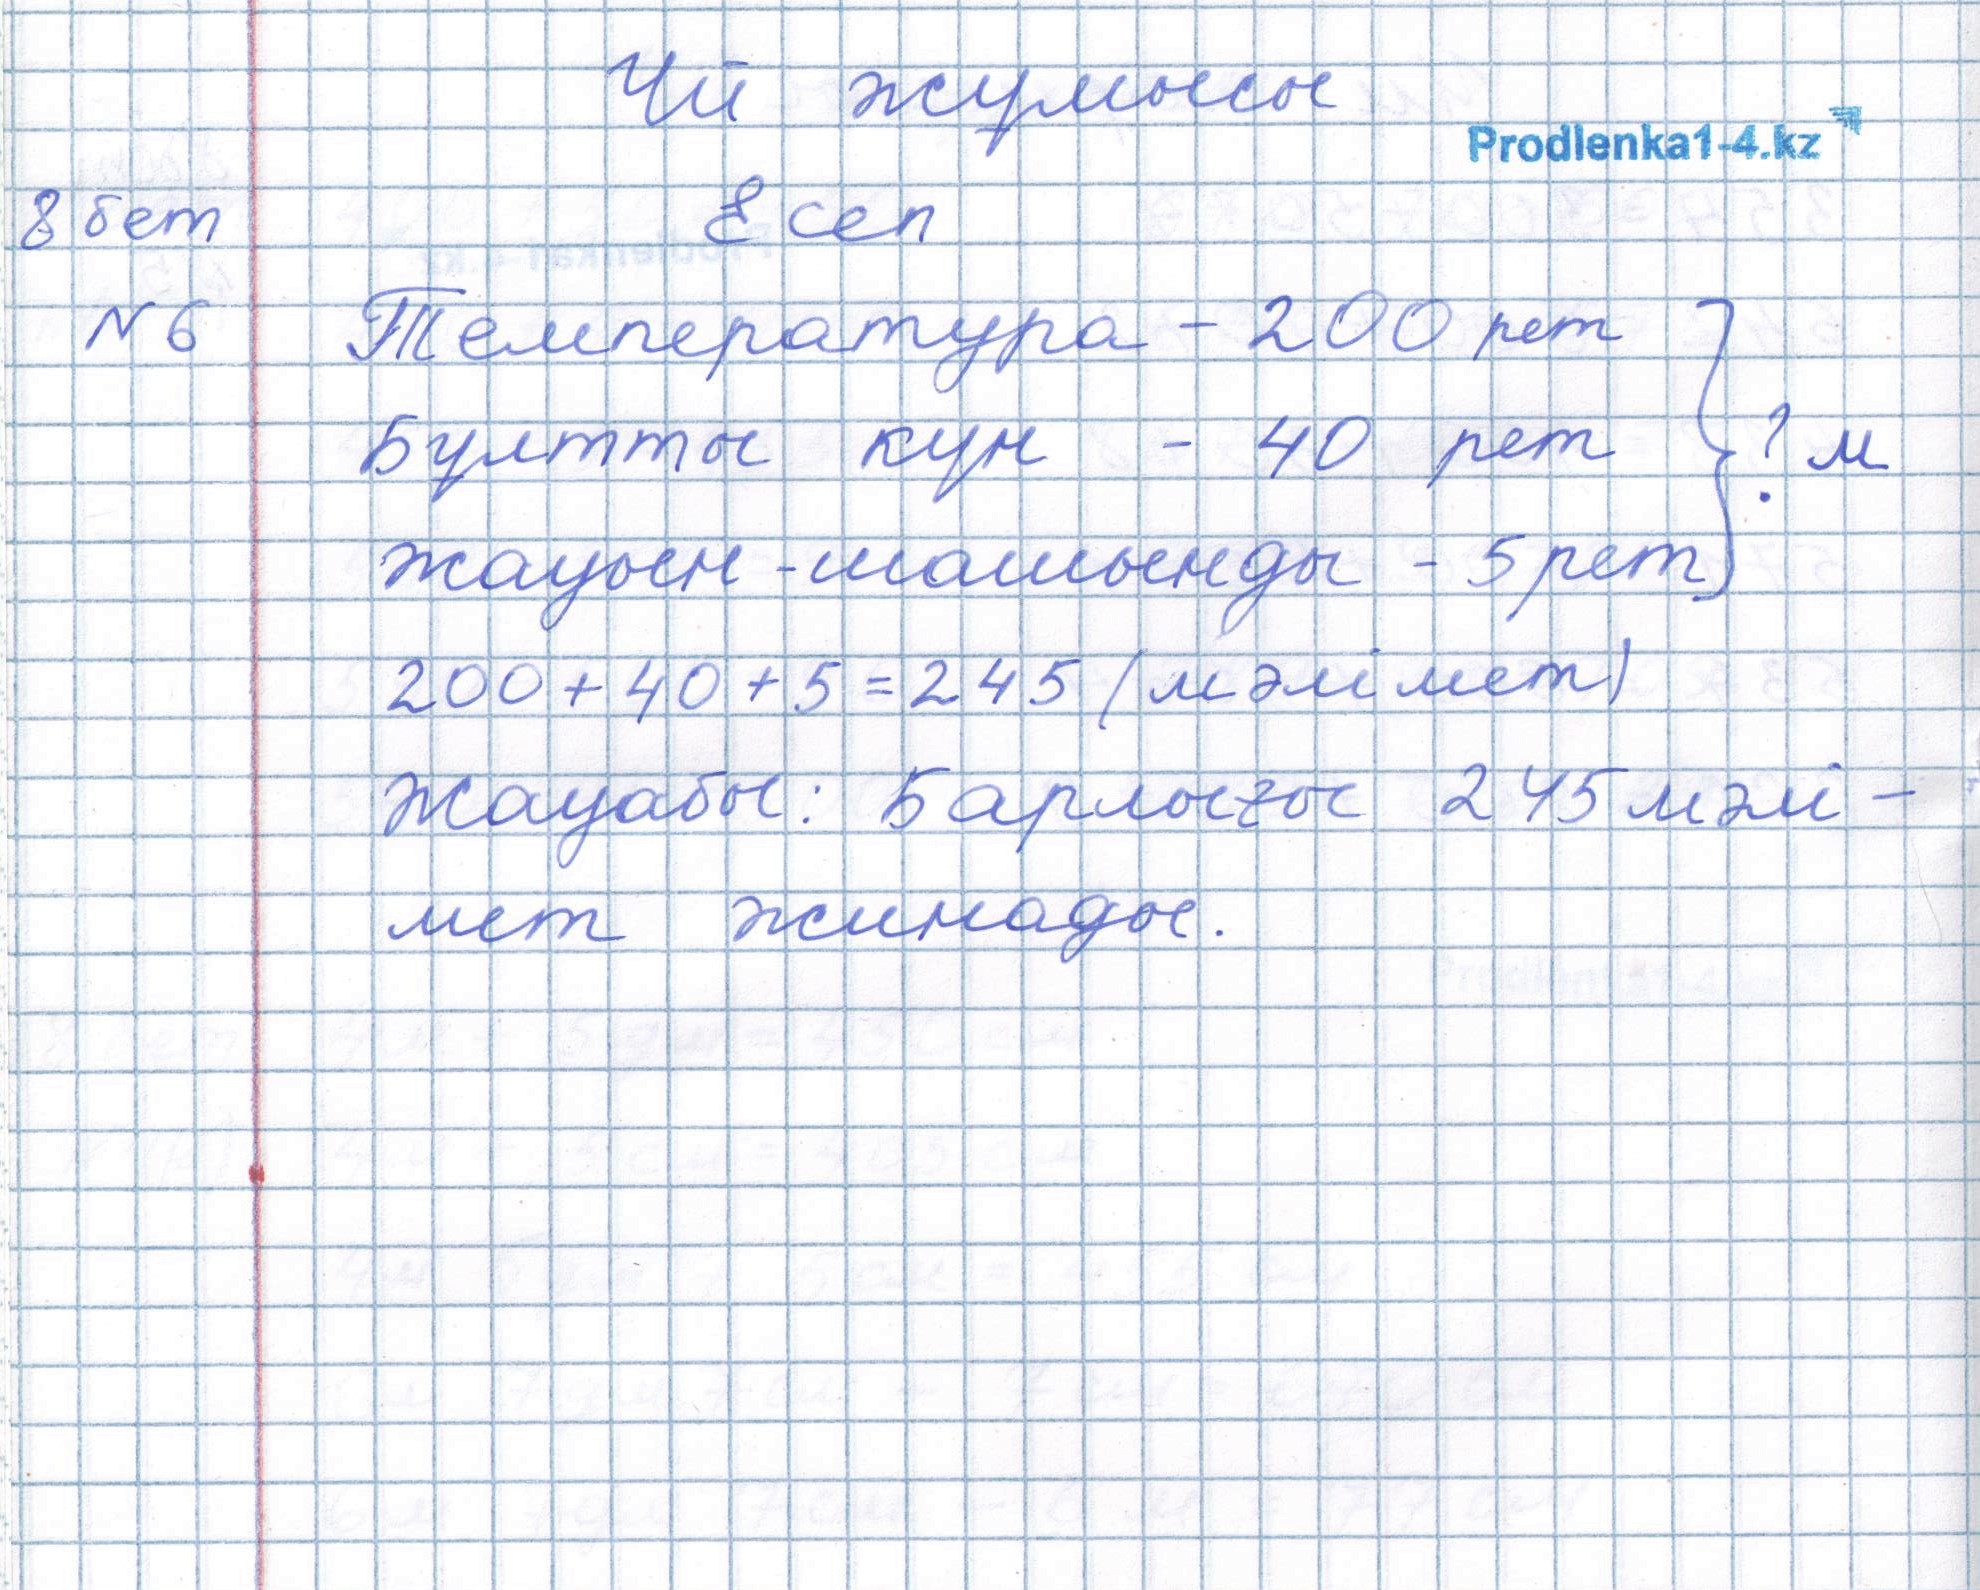 Үй жұмысы
Prodlenka1-4.kz
8 бет Есеп
N6 Температура - 200 рет
Бұлтты күн - 40 рет ? м
жауын-шашынды - 5 рет
200 + 40 + 5 = 245 (мәлімет)
Жауабы: Барлығы 245 мәлі-
мет жинады.